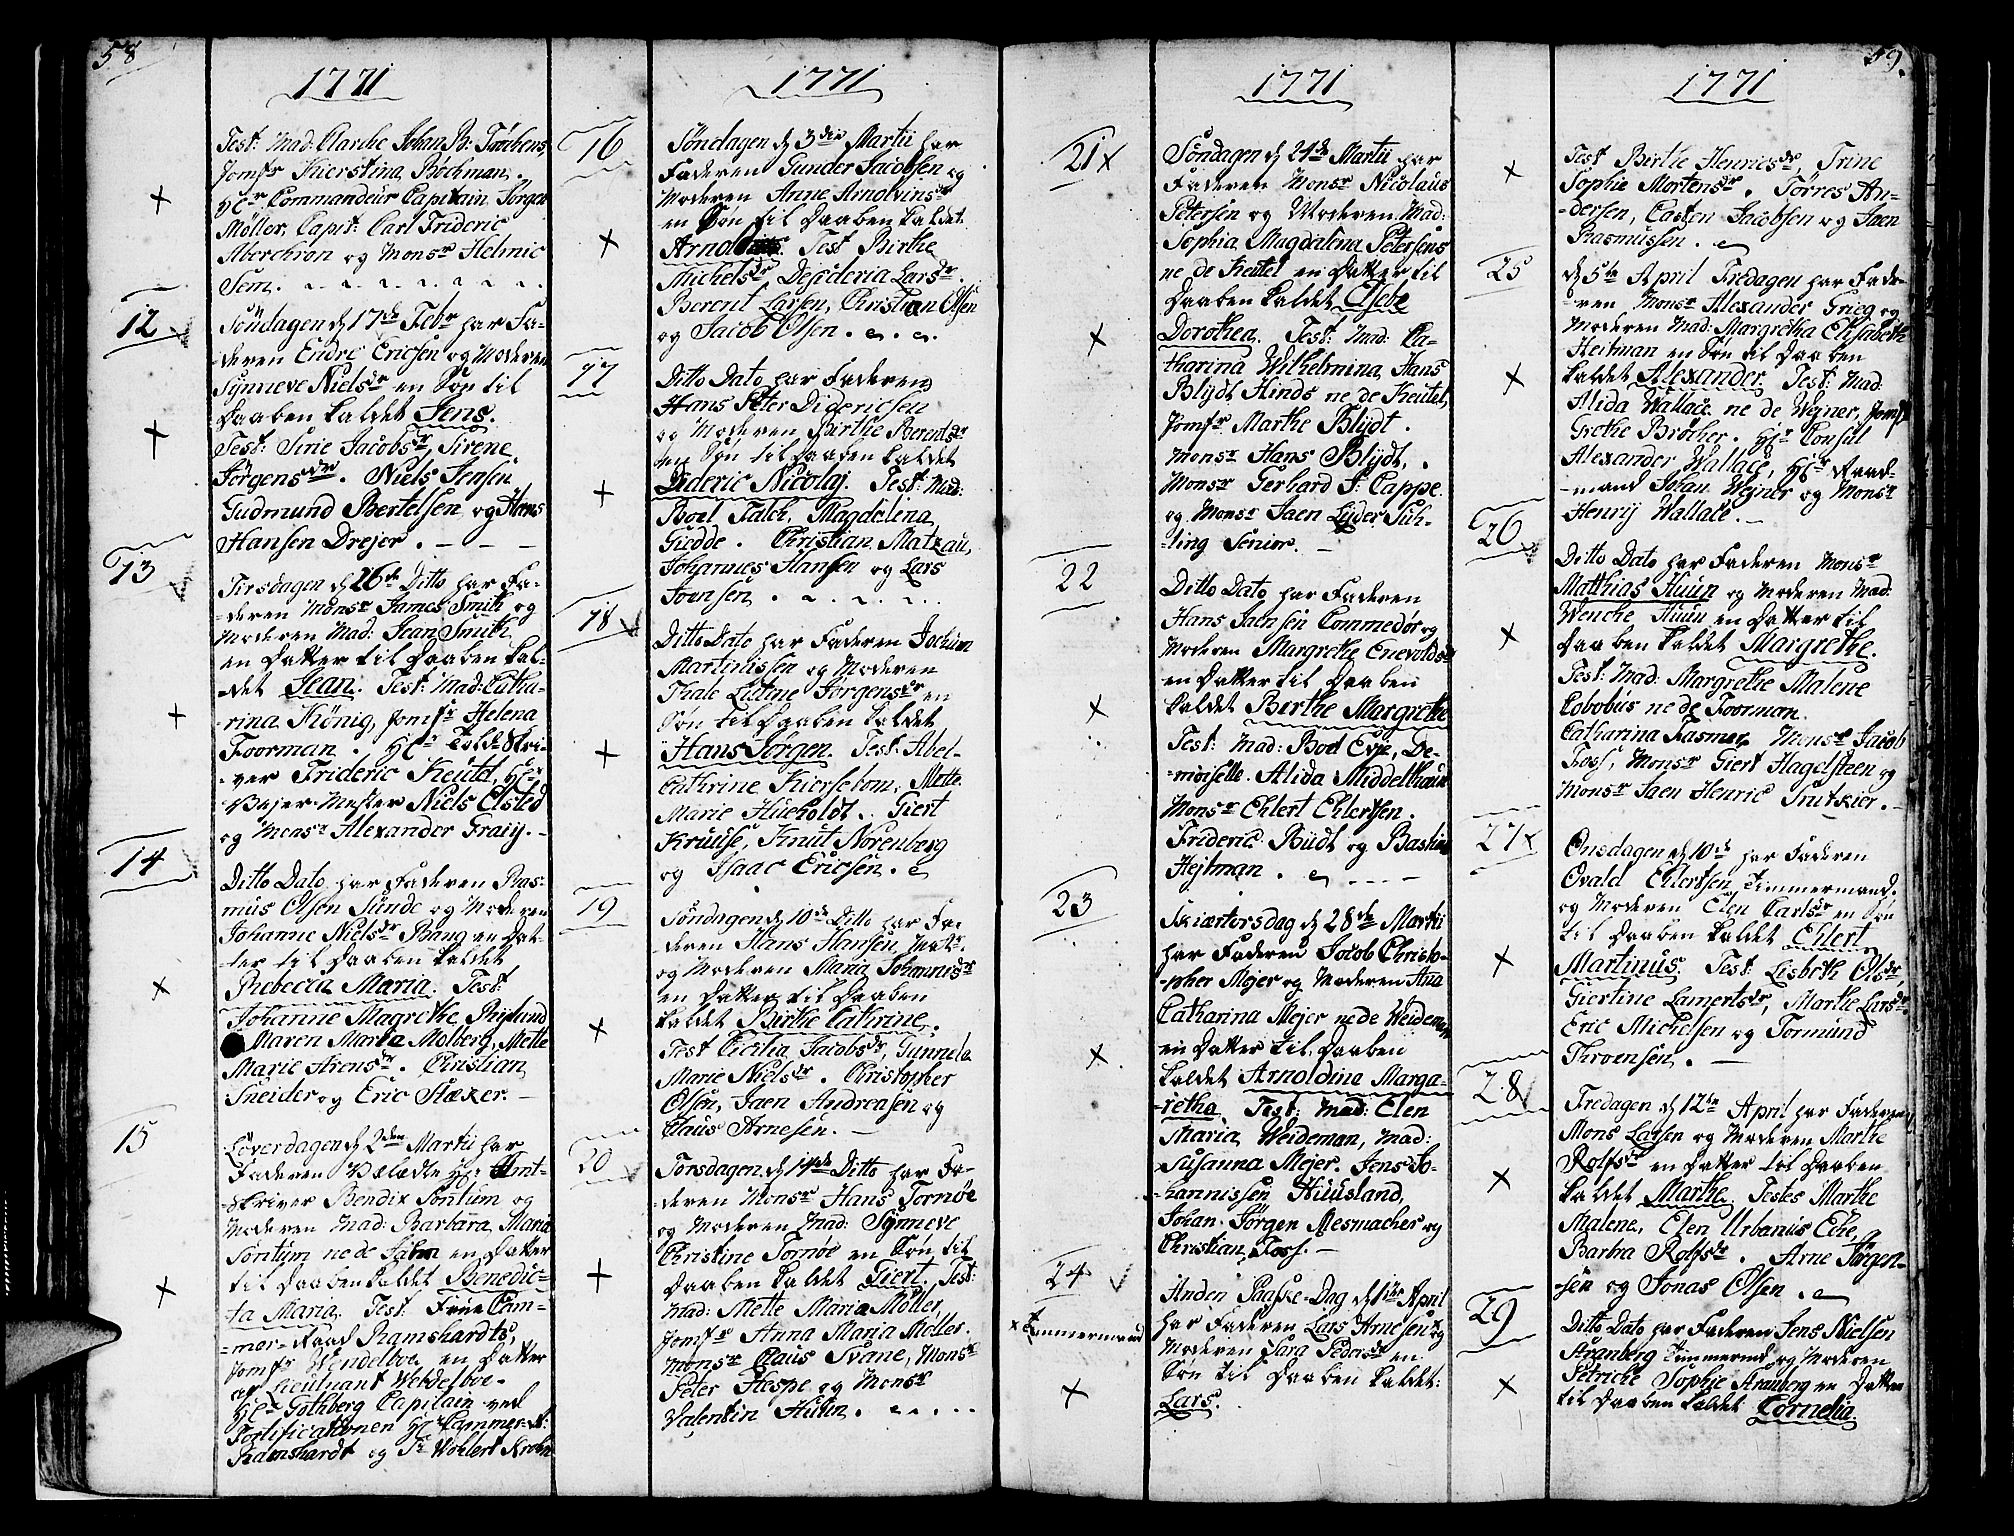 58
1771
Test: Mad: Clarche Johan B: Trøbens,
Jomfr Kierstina Bøchman.
Hr Commandeur Capitain Jørgen
Møller, Capit: Carl Frideric
Aberchron og Monsr Helmic
Sem.
12
Søndagen d 17de Febr har Fa-
-deren Endre Ericsen og Moderen
Synneve Nielsdr en Søn til
Daaben kaldet Jens.
Test: Sirie Jacobsdr, Sirene
Jørgensdr. Niels Jensen
Gudmund Bertelsen og Hans
Hansen Drejer.
13
Tirsdagen d 26de Ditto har Fa-
-deren Monsr James Smith og
Moderen Mad: Jean Smith
en Datter til Daaben kal-
-det Jean. Test: Mad: Catha-
-rina König, Jomfr Helena
Foorman. Hr Told-Skri-
-ver Frideric Keutel, Hr
Vejer-Mester Niels Elsted
og Monsr Alexander Graig.
14
Ditto Dato har Faderen Ras-
mus Olsen Sunde og Moderen
Johanne Nielsdr Bang en Dat-
-ter til Daaben kaldet
Rebecca Maria. Test:
Johanne Magrethe Ryland
Maren Maria Molberg, Mette
Marie Arensdr. Christian
Sneider og Eric Stæxer.
15
Løverdagen d 2den Martii har
Faderen Velædle Hr: Amt-
-skriver Bendix Sontum og
Moderen Mad: Barbara Maria
Sontum ne de Jahn en Datter
til Daaben kaldet Benedic-
-ta Maria. Test: Frue Cam-
-mer-Raad Ramshardts,
Jomfr Vendelboe en Datter
af Lieutnant Vendelboe.
Hr Gothberg Capitain ved
Fortificationen Hr Cammer-R:
Ramshardt og Sr Wohlert Krohn
1771
16
Søndagen d 3die Martii har
Faderen Gunder Jacobsen og
Moderen Anne Arnolvinsdr
en Søn til Daaben kaldet
Test Birthe
Michelsdr Desideria Larsdr.
Berent Larsen, Christian Olsen
og Jacob Olsen.
17
Ditto Dato har Faderen
Hans Peter Didericsen
og Moderen Birthe Berentsdr
en Søn til Daaben kaldet
Dideric Nicolaj. Test: Mad:
Boel Falch, Magdelina
Giedde. Christian Matzau,
Johannes Hansen og Lars
Svensen.
18
Ditto Dato har Faderen Jochum
Martinissen og Moderen
Thale Lutine Jørgensdr en
Søn til Daaben kaldet
Hans Jørgen. Test: Abel-
Cathrine Kiersebom, Mette
Marie Hueholdt. Giert
Kruuse, Knut Norenberg
og Isaac Ericsen.
19
Søndagen d 10de Ditto har Fa-
-deren Hans Hansen
og Moderen Maria Johannisdr
en Datter til Daaben
kaldet Birthe Cathrine.
Test Cecilia Jacobsdr, Gunnela
Marie Nielsdr. Christopher
Olsen, Jaen Andreasen og
Claus Arnesen.
20
Torsdagen d 14de Ditto har Fa-
-deren Monsr Hans Tornøe
og Moderen Mad: Synneve
Christine Tornøe en Søn til
Daaben kaldet Giert. Test:
Mad: Mette Maria Møller,
Jomfr Anna Maria Møller.
Monsr Claus Svane, Monsr
Peter Hespe og Monsr
Valentin Huten.
1771
21
Søndagen d 24de Martii har
Faderen Monsr Nicolaus
Petersen og Moderen Mad:
Sophia Magdalina Petersens
ne de Keutel en Datter til
Daaben kaldet Elsebe
Dorothea. Test: Mad: Ca-
tharina Wilhelmina, Hans
Blydt Hinds ne de Keutel,
Jomfr Marthe Blydt.
Monsr Hans Blydt,
Monsr Gerhard F: Cappe
og Monsr Jaen Lyder Süh-
-ling Senior.
22
Ditto Dato har Faderen
Hans Jaensen Commedør og
Moderen Margrethe Enevoldsdr
en Datter til Daaben
kaldet Birthe Margrethe
Test: Mad: Boel Evje, De-
-moiselle. Alida Middelthuun
Monsr Ehlert Ehlertsen.
Frideric Büdt og Bastian
Hejtman.
23
Skiærtorsdag d 28de Martii
har Faderen Jacob Christo-
-pher Mejer og Moderen Ana
Catharina Mejer ne de Weideman
en Datter til Daaben
kaldet Arnoldina Marga-
-retha. Test: Mad: Elen
Maria Weideman, Mad:
Susanna Mejer. Jens Jo-
-hannissen Huusland,
Johan Jørgen Mesmacher og
Christian Foss.
24
x Timmermand
Anden Paaske-Dag d 1ste April
har Faderen Lars Arnesen x og
Moderen Sara Pedersdr en
Søn til Daaben kaldet:
Lars.
59.
1771
Test Birthe Henricsdr, Trine
Sophie Mortensdr. Tørres An-
-dersen, Casten Jacobsen og Jaen
Rasmussen.
25
d 5te April Fredagen har Fade-
-ren Monsr Alexander Grieg og
Moderen Mad: Margretha Elisabeth
Heitman en Søn til Daaben
kaldet Alexander. Test: Mad:
Alida Wallace ne de Wejner, Jomfr
Grethe Brøcher. Hr Consul
Alexander Wallace, Hr Raad-
-mand Johan Wejner og Monsr
Henrij Wallace.
26
Ditto Dato har Faderen Monsr
Matthias Huun og Moderen Mad:
Wenche Huun en Datter til
Daaben kaldet Margrethe.
Test: Mad: Margrethe Malene
Cobobus ne de Foorman.
Catharina Fasmer, Monsr Jacob
Foss, Monsr Giert Hagelsteen og
Monsr Jaen Henric Trutzier.
27
Onsdagen d 10de har Faderen
Ovald Ehlertsen Timmermand.
og Moderen Elen Carlsdr en Søn
til Daaben kaldet Ehlert
Martinus. Test: Lisbeth Olsdr,
Giertine Lamertsdr, Marthe Larsdr.
Eric Michelsen og Tormund
Throensen.
28
Fredagen d 12te April har Faderen
Mons Larsen og Moderen Marthe
Rolfsdr en Datter til Daaben
kaldet Marthe. Testes Marthe
Malene, Elen Urbanus Eche,
Barbra Rolfsdr. Arne Jørgen-
sen og Jonas Olsen.
29
Ditto Dato har Faderen Jens Nielsen
Stranberg Timmermd og Moderen
Petriche Sophie Stranberg en Datter
til Daaben kaldet Cornelia